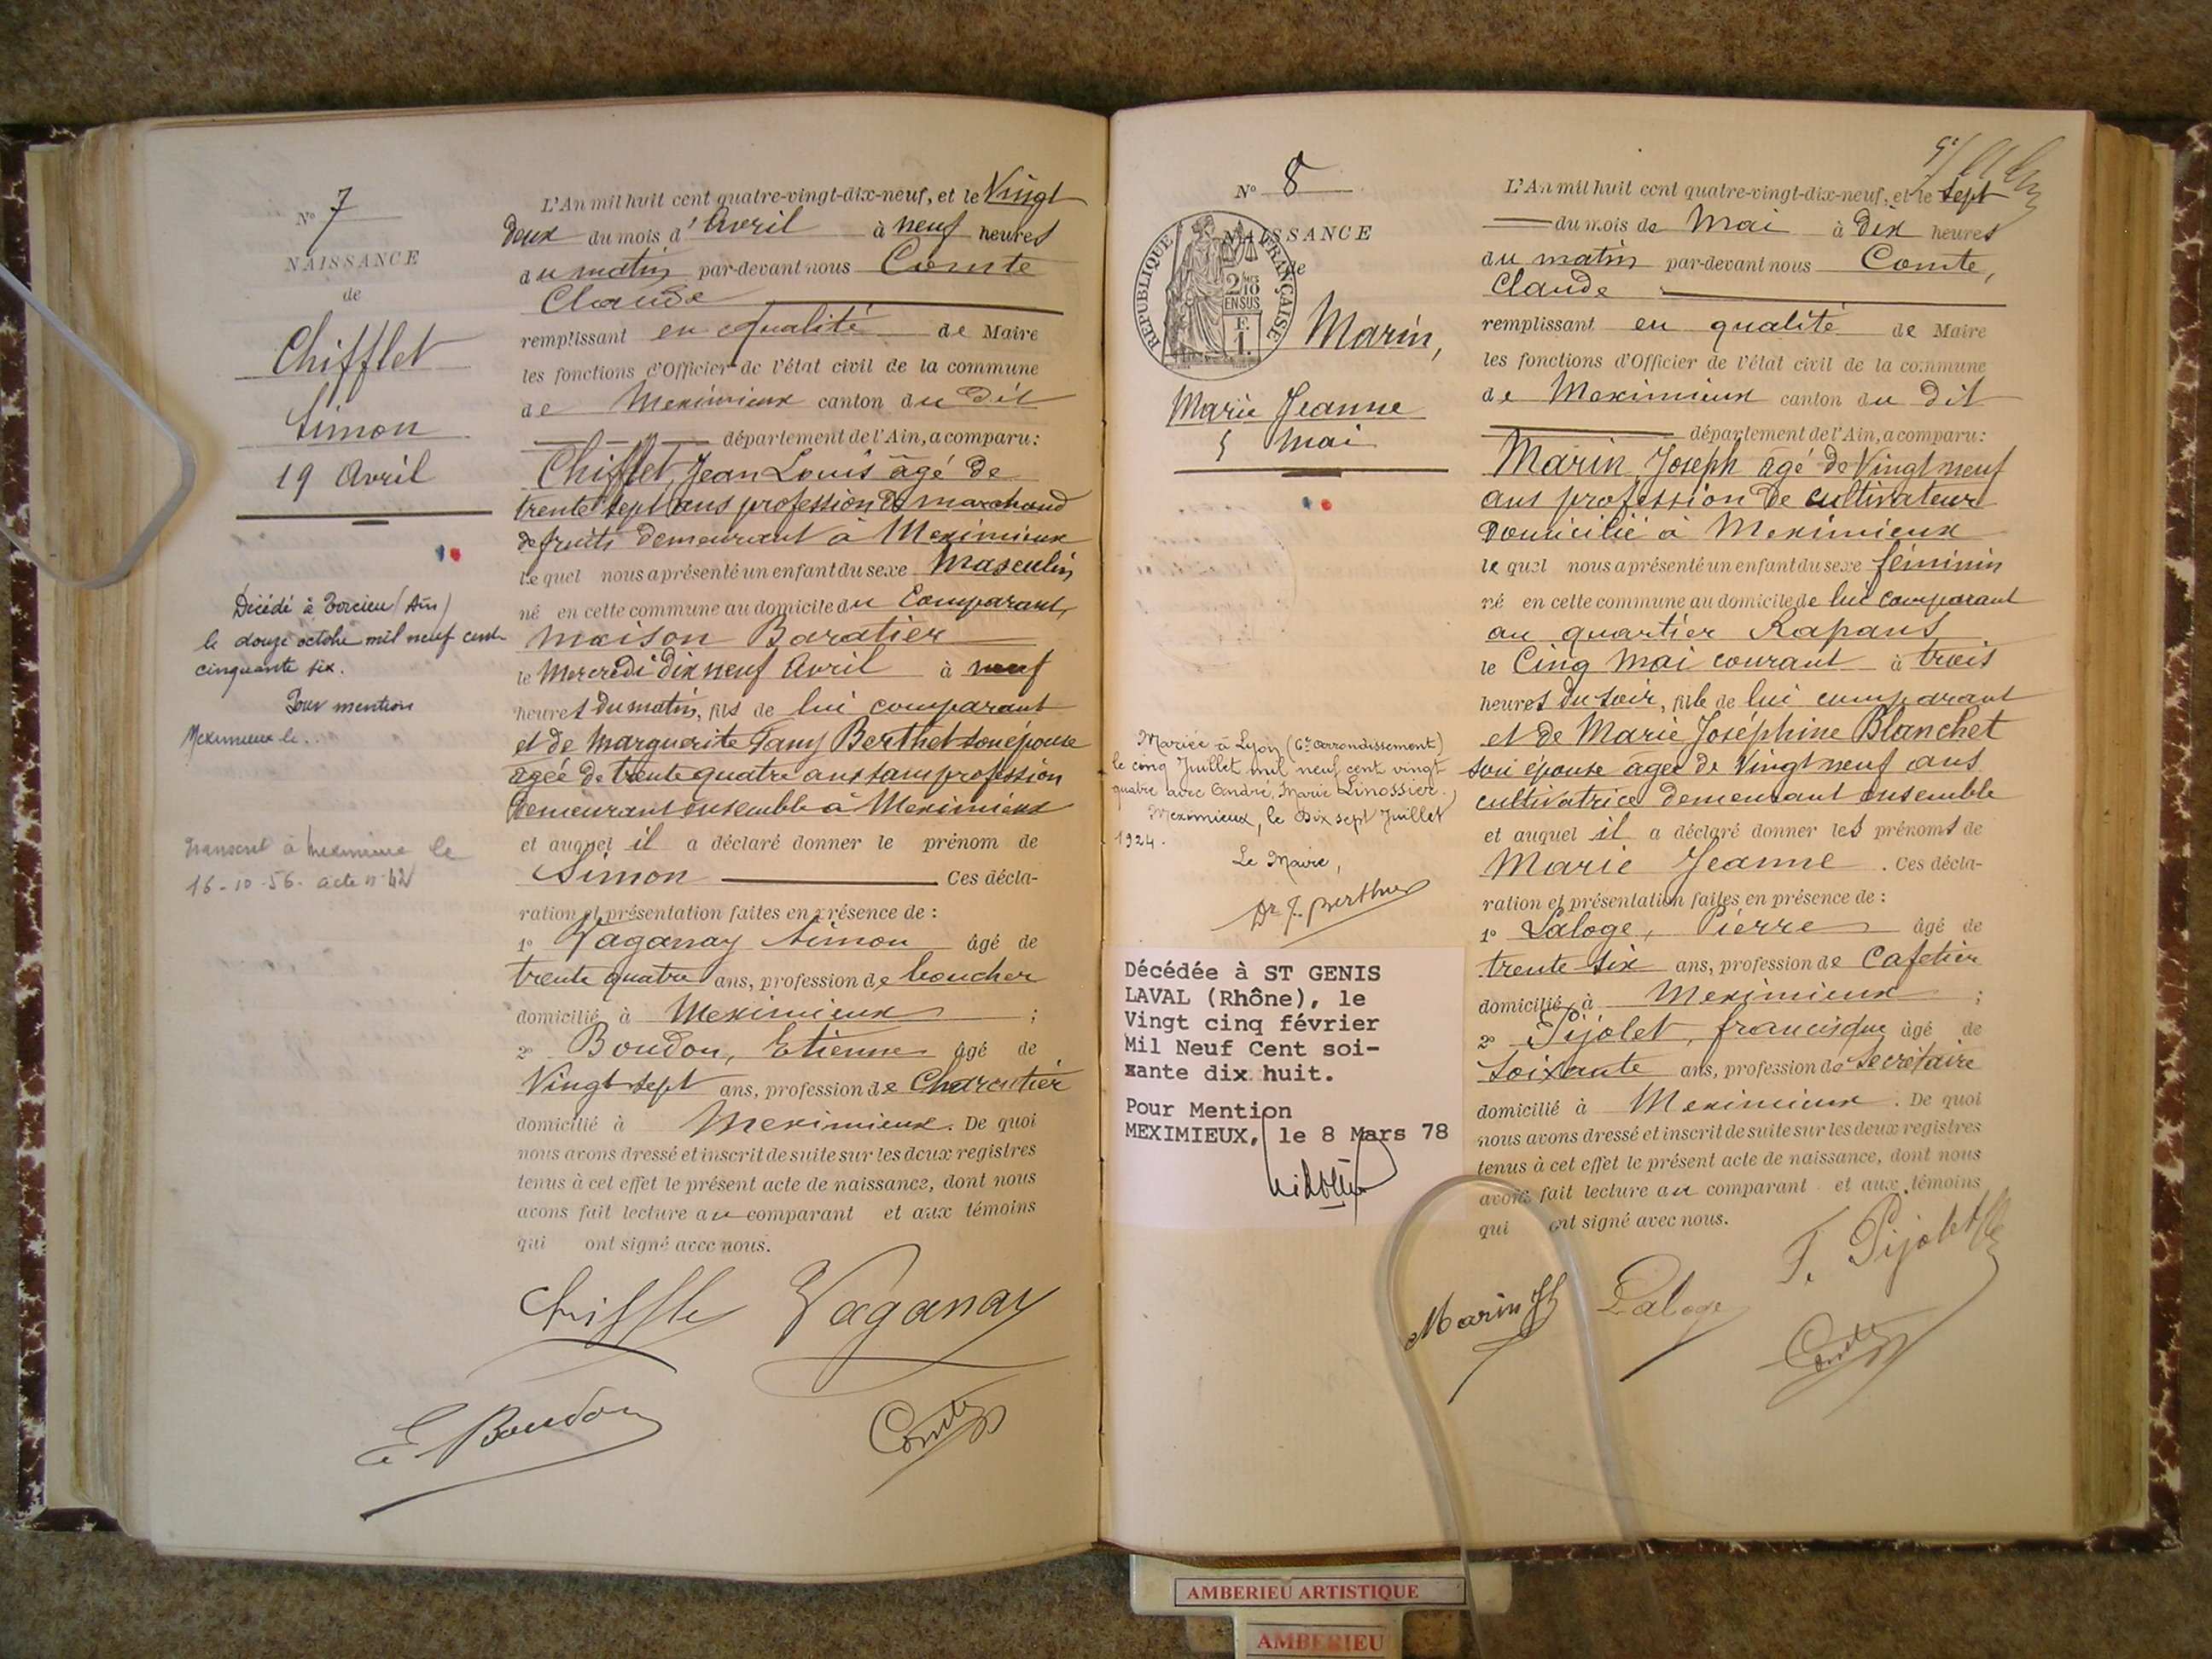 N° 7
NAISSANCE
de
Chifflet
Simon
19 Avril
Décédé à Torcieu (Ain)
le douze octobre mil neuf cent
cinquante six.
Pour mention
Meximieux le..
transcrit à Meximieux le
16-10-56. acte n° 42
L'An mil huit cent quatre-vingt-dix-neuf, et le Vingt
deux du mois d'Avril à neuf heures
du matin par-devant nous Comte
Claude
remplissant en qualité de Maire
les fonctions d'Officier de l'état civil de la commune
de Meximieux canton du Dit
département de l'Ain, a comparu :
Chifflet, Jean Louis âgé de
trente sept ans profession de marchand
de fruits demeurant à Meximieux
le quel nous a présenté un enfant du sexe Masculin
né en cette commune au domicile du Comparant,
maison Baratier
le Mercredi dix neuf Avril à neuf
heures du matin, fils de lui comparant
et de Marguerite Fany Berthet son épouse
âgée de trente quatre ans sans profession
demeurant ensemble à Meximieux
et auquel il a déclaré donner le prénom de
Simon Ces décla-
ration et présentation faites en présence de :
1° Vaganay Simon âgé de
trente quatre ans, profession de boucher
domicilié à Meximieux ;
2° Boudon, Etienne âgé de
Vingt sept ans, profession de Charcutier
domicilié à Meximieux. De quoi
nous avons dressé et inscrit de suite sur les deux registres
tenus à cet effet le présent acte de naissance, dont nous
avons fait lecture au comparant et aux témoins
qui ont signé avec nous.
Chiffle Vaganay
E Boudon Comte
N° 8
NAISSANCE
de
REPUBLIQUE FRANÇAISE
2/10
EN SUS
F.
1.
Marin,
Marie Jeanne
5 Mai
Mariée à Lyon (6e arrondissement)
le cinq Juillet mil neuf cent vingt
quatre avec André, Marie Linossier.
Meximieux, le Dix sept Juillet
1924.
Le Maire,
Dr J. Berthier
Décédée à ST GENIS
LAVAL (Rhône), le
Vingt cinq février
Mil Neuf Cent soi-
xante dix huit.
Pour Mention
MEXIMIEUX, le 8 Mars 78
L'An mil huit cent quatre-vingt-dix-neuf, et le Sept
du mois de Mai à Dix heures
du matin par-devant nous Comte,
Claude
remplissant en qualité de Maire
les fonctions d'Officier de l'état civil de la commune
de Meximieux canton du Dit
département de l'Ain, a comparu :
Marin Joseph âgé de Vingt neuf
ans profession de cultivateur
Domicilié à Meximieux
le quel nous a présenté un enfant du sexe féminin
né en cette commune au domicile de lui comparant
au quartier Rapans
le Cinq Mai courant à trois
heures du soir, fille de lui comparant
et de Marie Joséphine Blanchet
son épouse agée de Vingt neuf ans
cultivatrice demeurant ensemble
et auquel il a déclaré donner les prénoms de
Marie Jeanne. Ces décla-
ration et présentation faites en présence de :
1° Laloge, Pierre âgé de
trente six ans, profession de Cafetier
domicilié à Meximieux ;
2° Pijolet, francisque âgé de
Soixante ans, profession de Secrétaire
domicilié à Meximieux. De quoi
nous avons dressé et inscrit de suite sur les deux registres
tenus à cet effet le présent acte de naissance, dont nous
avons fait lecture au comparant et aux témoins
qui ont signé avec nous.
F. Pijolet
Marin Jh Laloge
Comte
AMBERIEU ARTISTIQUE
AMBERIEU